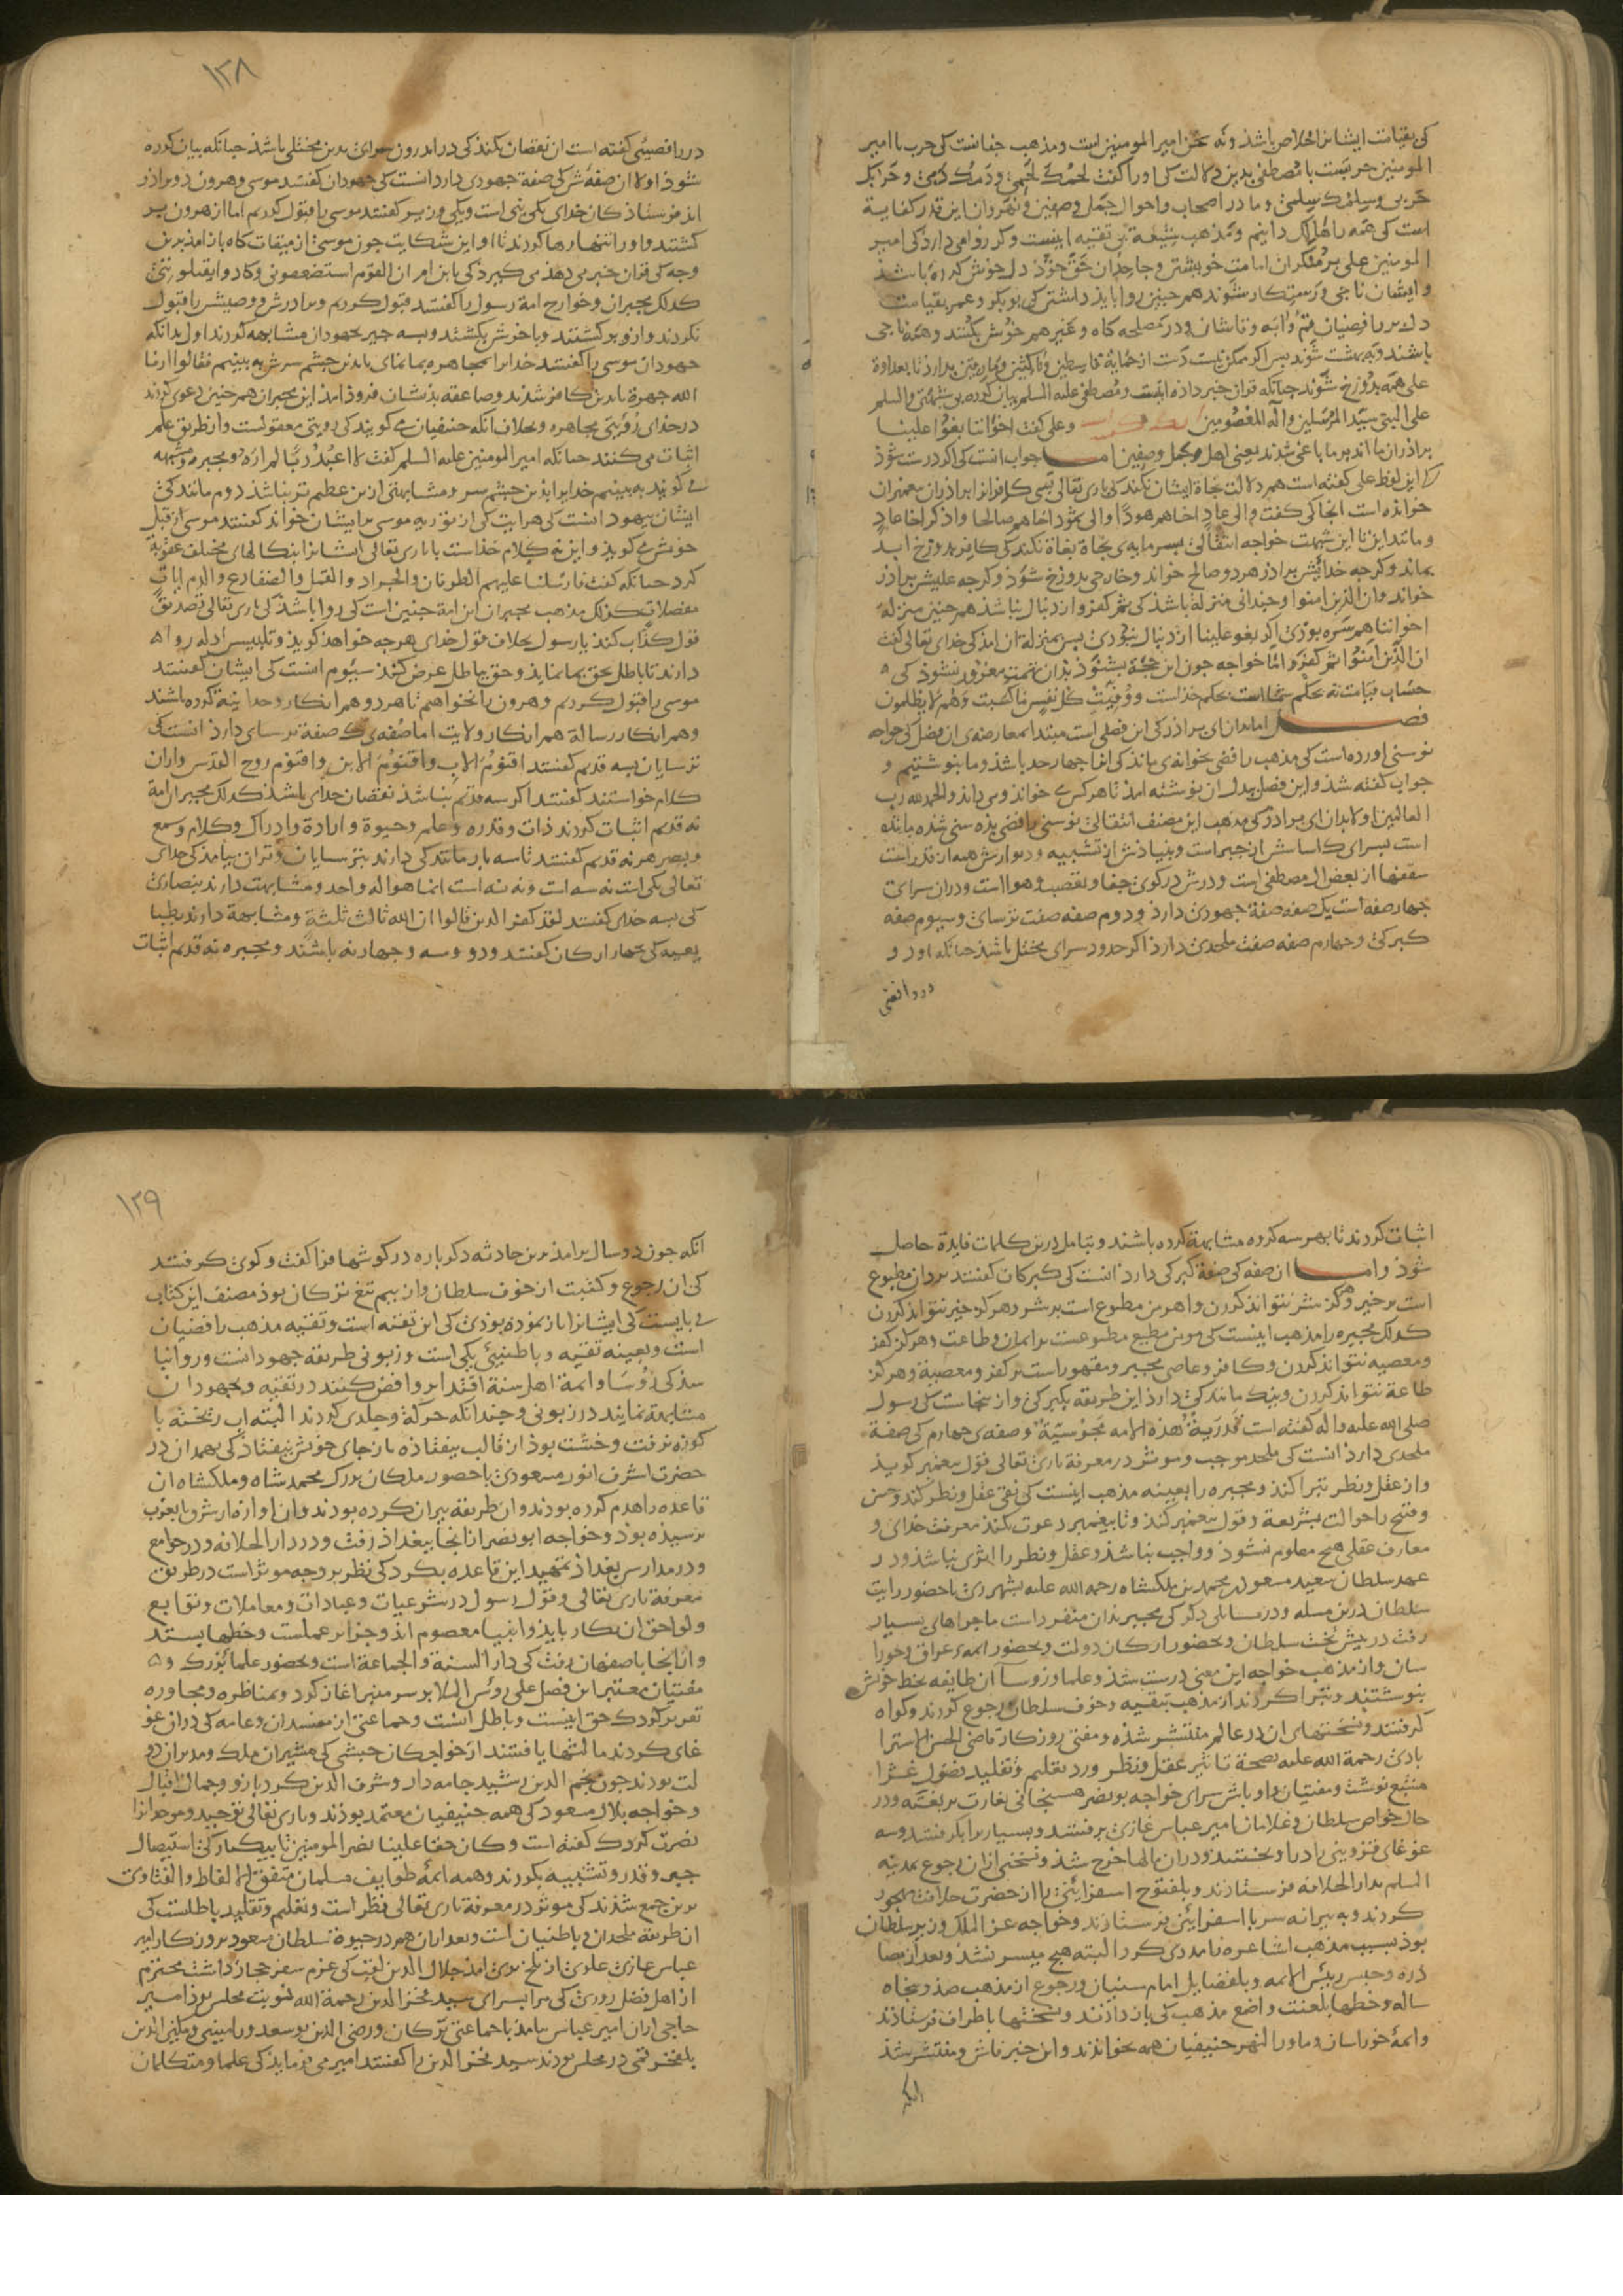 کی بقیامت ایشانرا خلاص باشد و نه سخن امیرالمومنین است و مذهب جفا نیست کی حرب با امیر
المومنین حربست با مصطفی بدین دلالت کی او را گفت لحمک لحمی و دمک دمی و حربک
حربی و سلمک سلمی و ما در اصحاب و احوال جمل و صفین و نهروان این قدر کفایة
است کی همه را هالک دانیم و مذهب شیعة بی تقیه اینست و کر روا می دارد کی امیر
المومنین علی بر منکران امامت خویشتن و جاحدان حق خوذ دل خوش کرده باشد
و ایشان ناجی و رستکار شوند همچنین روا باید داشتن کی بوبکر و عمر بقیامت
دل بر رافضیان قم و آبه و قاشان و در مصلحه کاه و غیرهم خوش بکنند و همه ناجی
باشند و ببهشت شوند پس اکر ممکن نیست دست از حمایة قاسطین و ناکثین و مارقین بدارد تا بعداوة
علی همه بدوزخ شوند چنانکه قران خبر داده است و مصطفی علیه السلم بیان کرده بی شبهتی والسلم
علی النبی سید المرسلین و آله المعصومین و علی گفت اخواننا بغوا علینا
براذران ما اند بر ما باغی شدند یعنی اهل جمل و صفین اما جواب آنست کی اکر درست شوذ
کی این لفظ علی گفته است هم دلالت نجاة ایشان نکند کی باری تعالی بسی کافرانرا براذران پیغمبران
خوانده است آنجا کی گفت والی عاد اخاهم هودا والی ثمود اخاهم صالحا واذکر اخا عاد
و مانند این تا این شبهت خواجه انتقالی بسرمایه‌ی نجاة بغاة نکند کی کافر بدوزخ ابد
بماند و کرچه خدایش براذر هود و صالح خواند و خارجی بدوزخ شوذ و کرچه علیش براذر
خواند و ان الذین امنوا چندانی منزله باشد کی ثم کفروا از دنبال نباشد همچنین منزله
اخواننا هم سره بوذی اکر بغوا علینا از دنبال نبوذی پس بمنزله آن آمد کی خدای تعالی گفت
ان الذین آمنوا ثم کفروا تا خواجه چون این حجة بشنوذ بدان تهمت مغرور نشوذ کی
حساب قیامت نه بحکم شما است بحکم خداست و وفیت کل نفس ما کسبت وهم لا یظلمون
فصل اما بدان ای براذر کی این فصلی است مبتدا بمعارضه‌ی ان فصل کی خواجه
نوسنی اورده است کی مذهب رافضی بخانه‌ی ماند کی انرا چهار حد باشد و ما بنوشتیم و
جواب گفته شد و این فصل ببدل ان نوشته امد تا هر کس کی خواند و می داند والحمد لله رب
العالمین اولا بدان ای براذر کی مذهب این مصنف انتقالی نوسنی رافضی بذه سنی شده مانند
است بسرای کی اساسش از جبر است و بنیادش از تشبیه و دیوارش همه از قدر است
سقفها از بغض ال مصطفی است و درش در کوی جفا و تعصب و هوا است و در ان سرای
چهار صفه است یک صفه صفة جهودی دارد و دوم صفه صفت ترسای و سیوم صفه
کبرکی و چهارم صفه صفت ملحدی دارد اکر حدود سرای مختل باشد چنانکه اورد و
در رافضی
۱۳۸
در رافضیی گفته است ان نقصان نکند کی در اندرون سرای بدین مختلی باشد چنانکه بیان کرده
شوذ اولا ان صفه‌ش کی صفة جهودی دارد انست کی جهودان گفتند موسی و هرون دو براذر
اند فرستاذکان خدای یکی نبی است و یکی وزیر گفتند موسی را قبول کردیم اما از هرون بر
کشتند و او را تنها رها کردند تا او این شکایت چون موسی از میقات کاه باز امد برین
وجه کی قران خبر می دهذ می کبرذ کی یابن ام ان القوم استضعفونی و کادوا یقتلوننی
کذلک مجبران و خوارج امة رسول را گفتند قبول کردیم و براذرش و وصیش را قبول
نکردند و ازو برکشتند و با خودش بکشتند و بسه چیز بجهودان مشابهه کردند اول بدانکه
جهودان موسی را گفتند خدایرا مجاهره بما نمای تا بدین چشم سرش به بینیم فقالوا ارنا
الله جهرة تا بدین کافر شدند و صاعقه بذیشان فروذ امذ این مجبران همچنین دعوی کردند
در خدای رؤیتی مجاهره و بخلاف انکه حنفیان می کویند کی رویتی معقولست و از طریق علم
اثبات می کنند چنانکه امیرالمومنین علیه السلم گفت لا اعبد ربا لم اره و مجبره و مشبهه
می کویند به بینیم خدایرا بذین چشم سر و مشابهتی ازین عظیم‌تر نباشد دوم مانندکی
ایشان بیهود انست کی هر ایت کی از توریه موسی بر ایشان خواند گفتند موسی از قبل
خوش می کوید و این نه کلام خداست تا باری تعالی ایشانرا بنکالهای مختلف عقوبة
کرد چنانکه گفت فارسلنا علیهم الطوفان والجراد والقمل والضفادع والدم ایات
مفصلات کذلک مذهب مجبران این امة چنین است کی روا باشد کی باری تعالی تصدیق
قول کذاب کند تا رسول بخلاف قول خدای هرچه خواهد کوید و تلبیس ادله روا
دارند تا باطل بحق بما نماید و حق بباطل عرض کند سیوم انست کی ایشان گفتند
موسی را قبول کردیم و هرون را نخواهیم تا هر دو هم انکار وحدانیة کرده باشند
و هم انکار رسالة هم انکار ولایت اما صفه‌ی کی صفة ترسای دارد انست کی
ترسایان بسه قدیم گفتند اقنوم الاب و اقنوم الابن و اقنوم روح القدس و از ان
کلام خواستند گفتند اکر سه قدیم نباشد نقصان خدای باشد کذلک مجبران امة
نه قدیم اثبات کردند ذات و قدره و علم و حیوة و ارادة و ادراک و کلام و سمع
و بصر هر نه قدیم گفتند تا سه بار مانندکی دارند بترسایان و قران بیامد کی خدای
تعالی یکی است نه سه است و نه نه است انما هو اله واحد و مشابهت دارند بنصاری
کی بسه خدای گفتند لقد کفر الذین قالوا ان الله ثالث ثلثة و مشابهة دارند بطبا
یعیه کی بچهار ارکان گفتند و دو و سه و چهار نه باشند و مجبره نه قدیم اثبات
اثبات کردند تا بهر سه کروه مشابهة کرده باشند و بتامل درین کلمات فایدة حاصل
شوذ و اما ان صفه کی صفة کبرکی دارد انست کی کبرکان گفتند یزدان مطبوع
است بر خیر و هرکز شر نتواند کردن و اهرمن مطبوع است بر شر و هرکز خیر نتواند کردن
کذلک مجبره را مذهب اینست کی مومن مطیع مطبوعست بر ایمان و طاعت و هرکز کفر
و معصیه نتواند کردن و کافر و عاصی مجبر و مقهور است بر کفر و معصیة و هرکز
طاعة نتواند کردن و بنیک مانندکی دارد این طریقه بکبرکی و از ینجاست کی رسول
صلی الله علیه و اله گفته است قدریة هذه الامه مجوسیة و صفه‌ی چهارم کی صفة
ملحدی دارد انست کی ملحد موجب و موثر در معرفة باری تعالی قول پیغمبر کوید
و از عقل و نظر تبرا کند و مجبره را بعینه مذهب اینست کی نفی عقل و نظر کند و حسن
و قبح را حوالت بشریعة و قول پیغمبر کند و تا پیغمبر دعوت نکند معرفت خدای و
معارف عقلی هیچ معلوم نشود و واجب نباشد و عقل و نظر را اثری نباشد و در
عهد سلطان سعید مسعود بن محمد بن ملکشاه رحمه الله علیه بشهر ری با حضور رایت
سلطان درین مسله و در مسائلی دکر کی مجبر بدان منفرد است ماجراهای بسیار
رفت در پیش تخت سلطان و بحضور ارکان دولت و بحضور ائمه‌ء عراق و خورا
سان و از مذهب خواجه این معنی درست شد و علما و روسا ان طایفه بخط خویش
بنوشتند و تبرا کردند از مذهب بتقیه و خوف سلطان رجوع کردند و کواه
کرفتند و نسختهای ان در عالم منتشر شده و مفتی روزکار قاضی الحسن استرا
بادی رحمة الله علیه بصحة تاثیر عقل و نظر و رد تعلیم و تقلید فصول غرا
منبع نوشت و مفتیان و اوباش سرای خواجه بونصر هسنجانی بغارت برفتند و در
حال خواص سلطان و غلامان امیر عباس غازی برفتند و بسیار را بکرفتند و سه
غوغای قزوینی را دراویختند و در ان مالها خرج شد و نسختی از ان رجوع بمدینه
السلم بدار الخلافه فرستاذند و بلفتوح اسفراینی را از حضرت خلافت مهجور
کردند و به بیرانه سر با اسفراین فرستاذند و خواجه عز الملک وزیر سلطان
بوذ بسبب مذهب اشاعره نامددی کرد البته هیچ میسر نشد و بعد از مصا
دره و حبس رییس الائمه و بلفضایل امام سنیان و رجوع از مذهب صد و پنجاه
ساله و خطها بلعنت واضع مذهب کی باز دادند و نسختها باطراف فرستاذند
و ائمهٔ خوراسان و ماوراالنهر حنیفیان همه بخواندند و این خبر فاش و منتشر شد
انکه
۱۳۹
انکه چون دو سال برامد برین حادثه دکرباره در کوشها فرا گفت و کوی کرفتند
کی ان رجوع و کتبت از خوف سلطان و از بیم تیغ ترکان بوذ مصنف این کتاب
می بایست کی ایشانرا باز نموده بوذی کی این تقیه است و تقیه مذهب رافضیان
است و بعینه تقیه و باطنیی یکی است و زبونی طریقه جهودانست و روا نبا
شد کی رؤسا و ائمة اهل سنة اقتدا بروافض کنند در تقیه و بجهودان
مشابهة نمایند در زبونی و چندانکه حرکة و جلدی کردند البته اب ریخته با
کوزه نرفت و خشت بوذ از قالب بیفتاذه باز جای خویش نیفتاذ کی بهمدان در
حضرت اشرف انور مسعودی با حضور ملکان بزرک محمد شاه و ملکشاه ان
قاعده را هدم کرده بودند و ان طریقه بیران کرده بودند و ان اوازه بشرق و بغرب
برسیذه بوذ و خواجه ابونصر از انجا ببغداذ رفت و در دار الخلافه و در جوامع
و در مدارس بغداذ تمهید این قاعده بکرد کی نظر بر وجه موثر است در طریق
معرفة باری تعالی و قول رسول در شرعیات و عبادات و معاملات و توابع
و لواحق ان بکار بایذ و انبیا معصوم اند و جزا بر عملست و خطها بستد
و از انجا باصفهان رفت کی دار السنة والجماعة است و بحضور علماء بزرک و
مفتیان معتبر این فصل علی رؤس الملا بر سر منبر اغاز کرد و بمناظره و محاوره
تقریر کرد کی حق اینست و باطل انست و جماعتی از مفسدان و عامه کی در ان غو
غای کردند مالشها یافتند از خواجکان حبشی کی مشیران ملک و مدبران دو
لت بودند چون نجم الدین رشید جامه‌دار و شرف الدین کردبازو و جمال اقبال
و خواجه بلال مسعود کی همه حنیفیان معتمد بوذند و باری تعالی توحید و موحدانرا
نصرت کرد کی گفته است و کان حقا علینا نصر المومنین تا بیکبارکی استیصال
جبر و قدر و تشبیه بکردند و همه ائمهٔ طوایف مسلمان متفق الالفاظ والفتاوی
برین جمع شدند کی موثر در معرفة باری تعالی نظر است و تعلیم و تقلید باطلست کی
ان طریقه ملحدان و باطنیان است و بعد از ان هم در حیوة سلطان مسعود بروزکار امیر
عباس غازی علوی از بلخ بری امذ جلال الدین لقب کی عزم سفر حجاز داشت محترم
از اهل فضل روزی کی مرا بسرای سید فخر الدین رحمة الله نوبت مجلس بود امیر
حاجی از ان امیر عباس بیامد با جماعتی ترکان و رضی الدین بوسعد ورامینی و ملیکی الدین
بلفخر قمی در مجلس بودند سید فخر الدین را گفتند امیر می فرماید کی علما و متکلمان